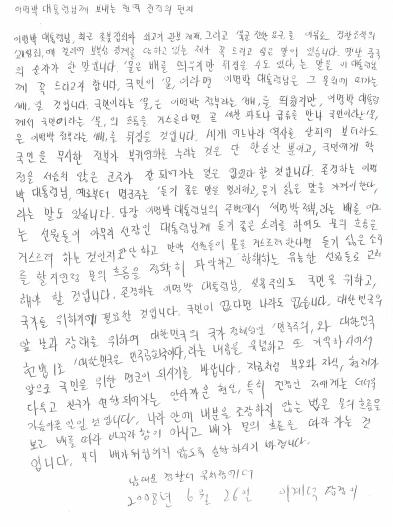 이명박 대통령님께 보내는 현역 전경의 편지
이명박 대통령님, 최근 촛불집회와 쇠고기 관련 문제, 그리고 '불법 진압 요구'를 이유로, 경찰조직의
느끼며 꼭 드리고 싶은 말이 있습니다. 옛날 중국
의 순자가 한 말입니다. '물은 배를 띄우지만 뒤집을 수도 있다'는 말을 이 대통령님
께 꼭 드리고자 합니다. 국민이 '물'이라면 이명박 대통령님은 그 물위에 떠가는
'배'일 것입니다. 국민이라는 '물'은 이명박 정부라는 '배'를 띄웠지만, 이명박 대통령
께서 국민이라는 '물'의 흐름을 거스른다면 곧 거센 파도나 급류를 만나 국민이라는 '물'
은 이명박 정부라는 '배'를 뒤집을 것입니다. 세계 어느나라 역사를 살피어 보더라도
국민을 무시한 권력가 부귀영화를 누리는 것은 단 한순간 뿐이고, 국민에게 학
정을 서슴치 않은 군주가 잘 되어가는 일은 없었다 할 것입니다. 존경하는 이명
박 대통령님, 예로부터 명군주는 '듣기 좋은 말은 멀리하고, 듣기 싫은 말을 가까이 한다'
라는 말도 있습니다. 당장 이명박 대통령님의 주변에서 '이명박 정부'라는 배를 이끄
는 선원들이 아무리 선장인 대통령님께 듣기 좋은 소리를 하여도 물의 흐름을
거스르려 하는 것인지 판단하고 만약 선원들이 물을 거스르려 한다면 듣기 싫은 소리
를 할지언정 물의 흐름을 정확히 파악하고 항해하는 유능한 선원들로 교체
해야 할 것입니다. 존경하는 이명박 대통령님, 실용주의도 국민을 위하고,
국가를 위하기에 필요한 것입니다. 국민이 없다면 나라도 없습니다. 대한민국의
앞 날과 장래를 위하여 대한민국의 국가 정체성인 '민주주의'와 대한민국
헌법 1조 '대한민국은 민주공화국이다'라는 내용을 유념하고 또 기억하시어서
앞으로 국민을 위한 명군이 되시기를 바랍니다. 지금처럼 부모와 자식, 형제가
다투고 친구가 되어가는 안타까운 현실, 특히 전경인 저에게는 더더욱
가슴아픈 일인 것 입니다. 나라 안에 내분을 조장하지 않는 법은 물의 흐름을
보고 배를 따라 바꾸라 함이 아니고 배가 물의 흐름을 따라 가는 것
입니다. 부디 배가 뒤집히지 않도록 순항하시기 바랍니다.
남대문 경찰서
2008년 6월 26일 이계덕